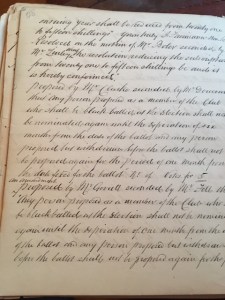 ensuing year shall be reduced from twenty one
to fifteen shillings
Resolved on the motion of Mr Peter seconded by
Mr the resolution reducing the subscription
from twenty one to fifteen shillings be and it
is hereby confirmed
Proposed by Mr Clarke seconded by Mr
that any person proposed as a member of the Club
who shall be black balled at the election shall not
be nominated again until the expiration of one
month from the date of the ballot and any person
proposed but withdrawn before the ballot shall not
be proposed again for the period of one month from
the date for the ballot No of Votes for
Proposed by Mr Garrett seconded by Mr
any person proposed as a member of the Club who
be black balled at the election shall not be nominated
again until the expiration of one month from the
of the ballot and any person proposed but withdrawn
before the ballot shall not be proposed again for the